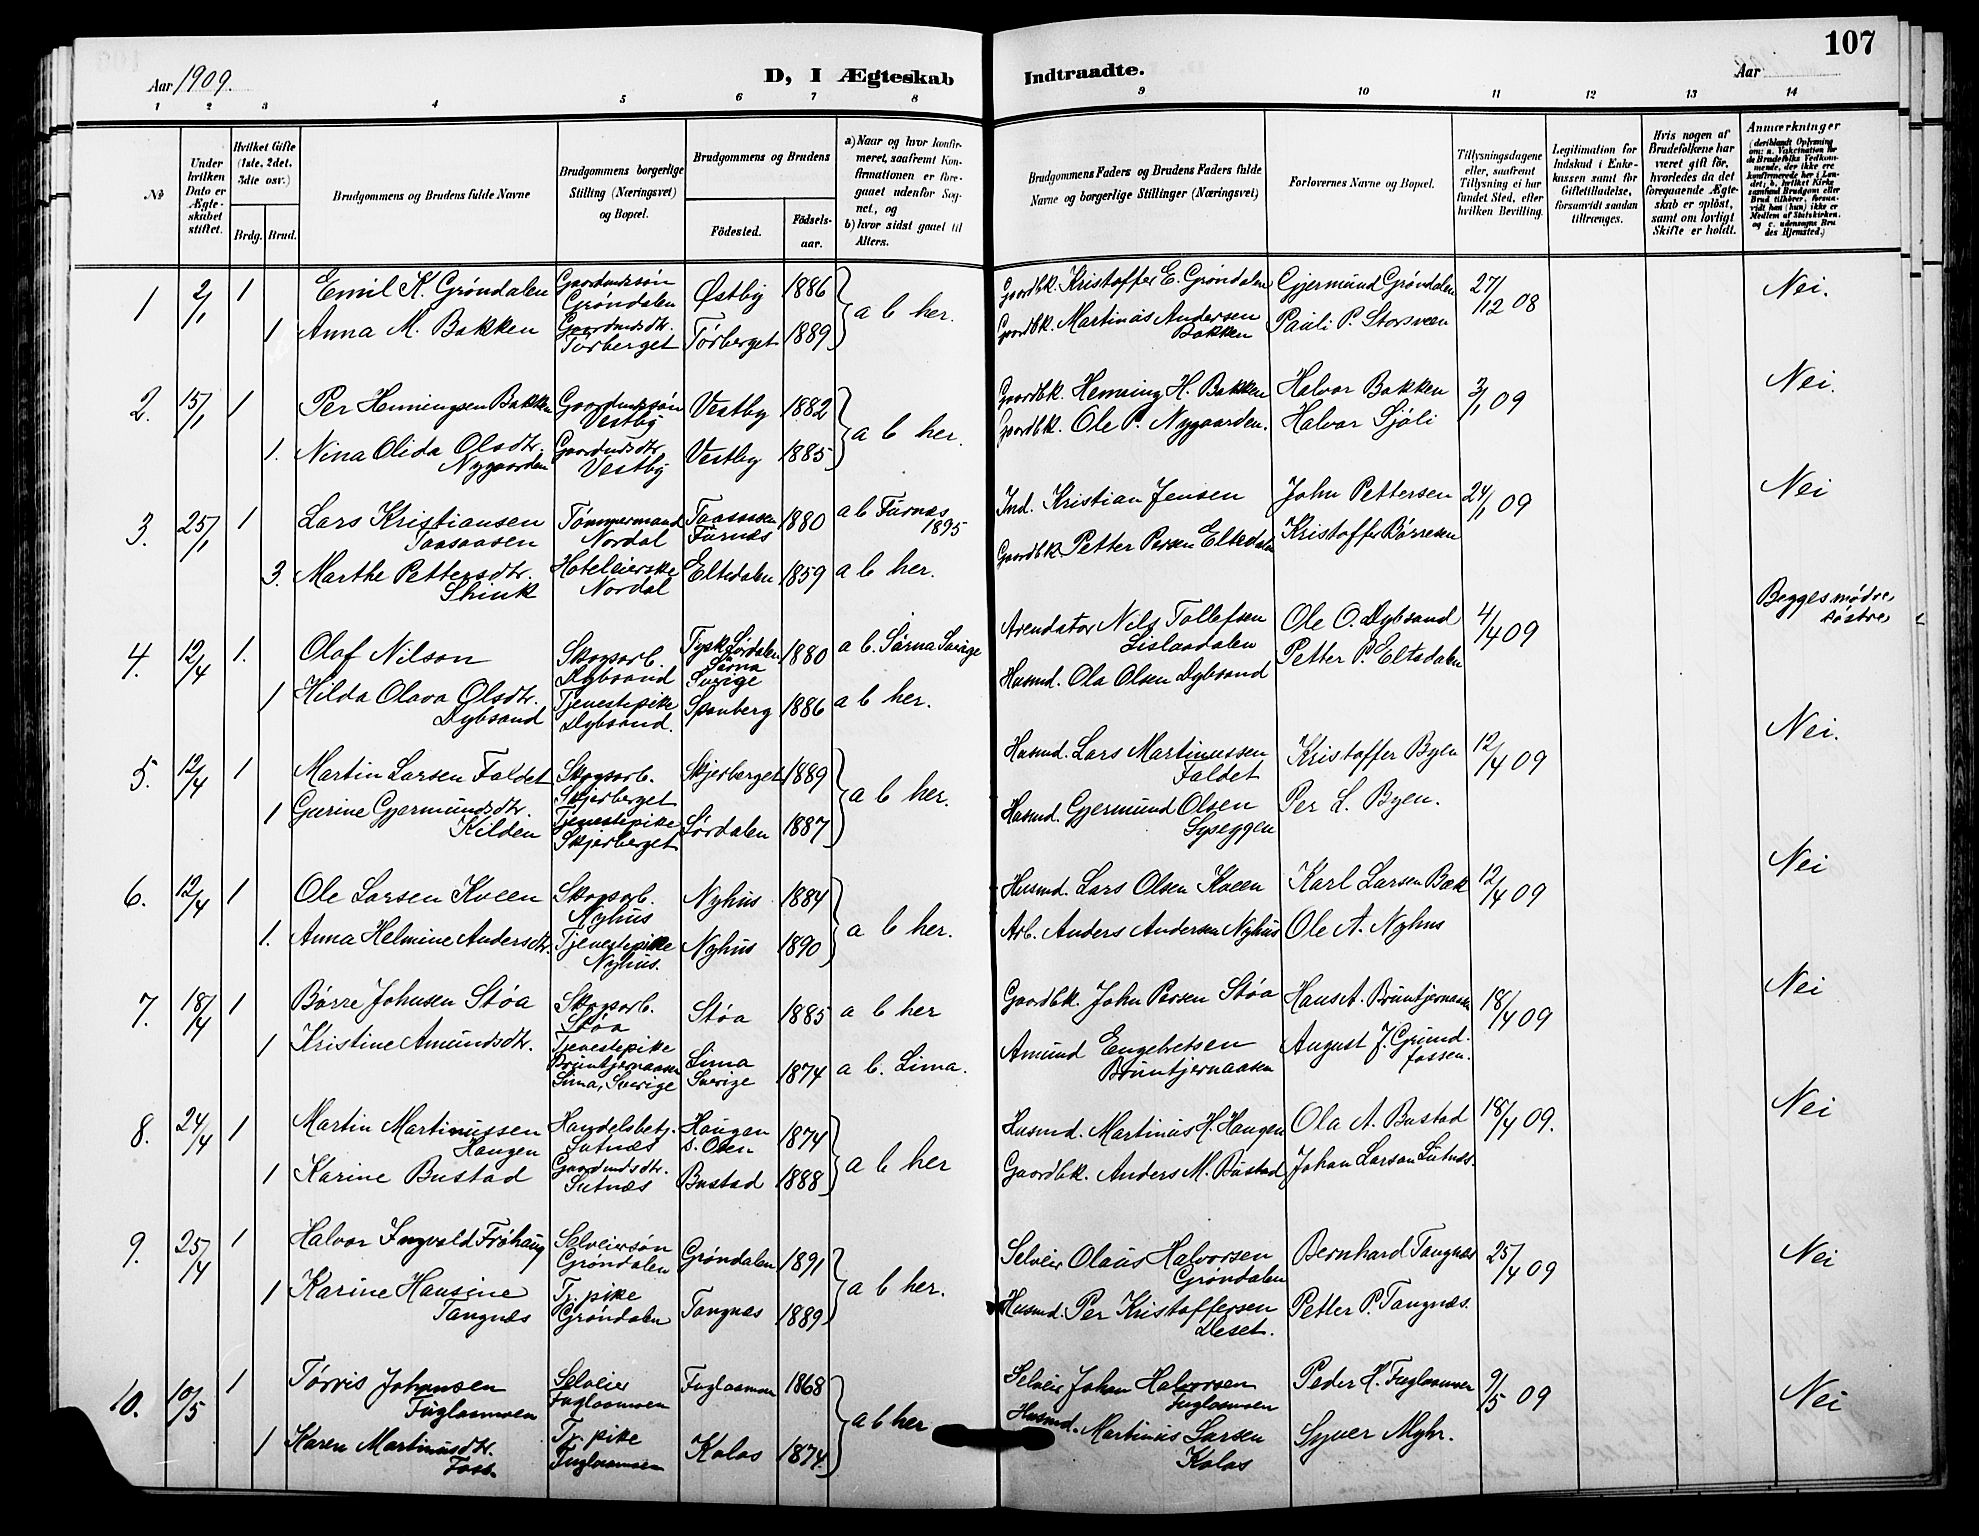 107
Aar 1909.
D, I Ægteskab Indtraadte.
Aar
1 2 3 4 5 6 7 8 9 10 11 12 13 14
No
Under hvilken Dato er Ægteskabet stiftet.
Hvilket Gifte (1ste, 2det, 3die osv.)
Brdg. Brud.
Brudgommens og Brudens fulde Navne
Brudgommens borgerlige Stilling (Næringsvei) og Bopæl.
Brudgommens og Brudens
Födested.
Födsels-aar.
a) Naar og hvor konfirmeret, saafremt Konfirmationen er foregaaet udenfor Sognet, og
b) hvor sidst gaaet til Alters.
Brudgommens Faders og Brudens Faders fulde Navne og borgerlige Stillinger (Næringsvei)
Forlovernes Navne og Bopæl.
Tillysningsdagene eller, saafremt Tillysning ei har fundet Sted, efter hvilken Bevilling.
Legitimation for Indskud i Enkekassen samt for Giftetilladelse, forsaavidt saadan tiltrænges.
Hvis nogen af Brudefolkene har været gift för, hvorledes da det foregaaende Ægteskab er oplöst, samt om lovligt Skifte er holdt.
Anmærkninger
1 2/1 1 Emil K. Grøndalen Gaardmdssøn Grøndalen Østby 1886 a b her. Gaardbk. Kristoffer E. Grøndalen Gjermund Grøndalen 27/12 08 Nei.
1 Anna M. Bakken Gaardmdsdtr. Tørberget Tørberget 1889 Gaardbk. Martinus Andersen Bakken Pauli P. Storsveen
2. 15/1 1 Per Henningsen Bakken Gaardmdssøn Vestby Vestby 1882 a b her. Gaardbk. Henning H. Bakken Halvor Bakken 3/1 09 Nei.
1. Nina Olida Olsdtr. Nygaarden Gaardmdsdtr Vestby Vestby 1885 Gaardbk. Ole P. Nygaarden. Halvor Sjøli
3. 25/1 1 Lars Kristiansen Taasaasen Tømmermand Nordal Taasaasen Furnæs 1880 a b Furnæs 1895 Ind. Kristian Jensen John Pettersen 24/1 09 Nei
3. Marthe Pettersdtr. Skink Hoteleierske Nordal Eltedalen 1859 a b her. Gaardbk. Petter Persen Eltedalen Kristoffer Børresen
4. 12/4 1. Olaf Nilson Skogsarb. Dybsand Fysk Lørdalen Särna Sverige 1880 a b. Särna Sverige Arendator Nils Tollefsen Lislaadalen Ole O. Dybsand 4/4 09 Begges mødre søstre
1 Hilda Olava Olsdtr. Dybsand Tjenestepike Dybsand. Spanberg 1886 a b her. Husmd. Ola Olsen Dybsand Petter P. Eltedalen
5. 12/4 1 Martin Larsen Faldet Skogsarb. Skjerberget Skjerberget 1889 a b her. Husmd. Lars Martinussen Faldet Kristoffer Byen 12/4 09 Nei.
1 Gjerine Gjermundsdtr. Kilden Tjenestepike Skjerberget Lørdalen 1887 Husmd. Gjermund Olsen Lyseggen Per L. Byen.
6. 12/4 1 Ole Larsen Kveen Skogsarb. Nyhus Nyhus 1884 a b her. Husmd. Lars Olsen Kveen Karl Larsen Bæk 12/4 09 Nei
1. Anna Helmine Andersdtr. Tjenestepike Nyhus. Nyhus 1890 Arb. Anders Andersen Nyhus Ole A. Nyhus
7. 18/4 1 Børre Johnsen Støa Skogsarb. Støa Støa 1885 a b her Gaardbk. John Persen Støa Hans A. Bruntjernaasen 18/4 09 Nei
1 Kristine Amundsdtr. Tjenestepike Bruntjernaasen Lima, Sverige Lima Sverige 1874 a b. Lima. Amund Engebretsen Bruntjernaasen August J. Grundfossen.
8. 24/4 1 Martin Martinussen Haugen Handelsbetj. Sutnæs Haugen s. Osen 1874 a b her Husmd. Martinus H. Haugen Ola A. Bustad 18/4 09. Nei
1 Karine Bustad Gaardmdsdtr. Sutnæs Bustad 1888 Gaardbk. Anders M. Bustad Johan Larsen Sutnæs.
9. 25/4 1 Halvor Ingvald Frøhaug Selveiersøn Grøndalen Grøndalen 1891 a b her. Selveier Olaus Halvorsen Grøndalen Bernhard Tangnæs 25/4 09 Nei
1 Karine Hansine Tangnæs Tj. pike Grøndalen Tangnæs 1889 Husmd. Per Kristoffersen Deset. Petter P. Tangnæs.
10. 10/5 1 Tørris Johansen Fuglaasmoen Selveier Fuglaasmoen Fuglaasmoen 1868 a b her Selveier Johan Halvorsen Fuglaasmoen Peder H. Fuglaasmoen 9/5 09 Nei
1 Karen Martinusdtr. Foss Tj. pike Fuglaasmoen Kolos 1874. Husmd. Martinus Larsen Kolos Syver Myhr.